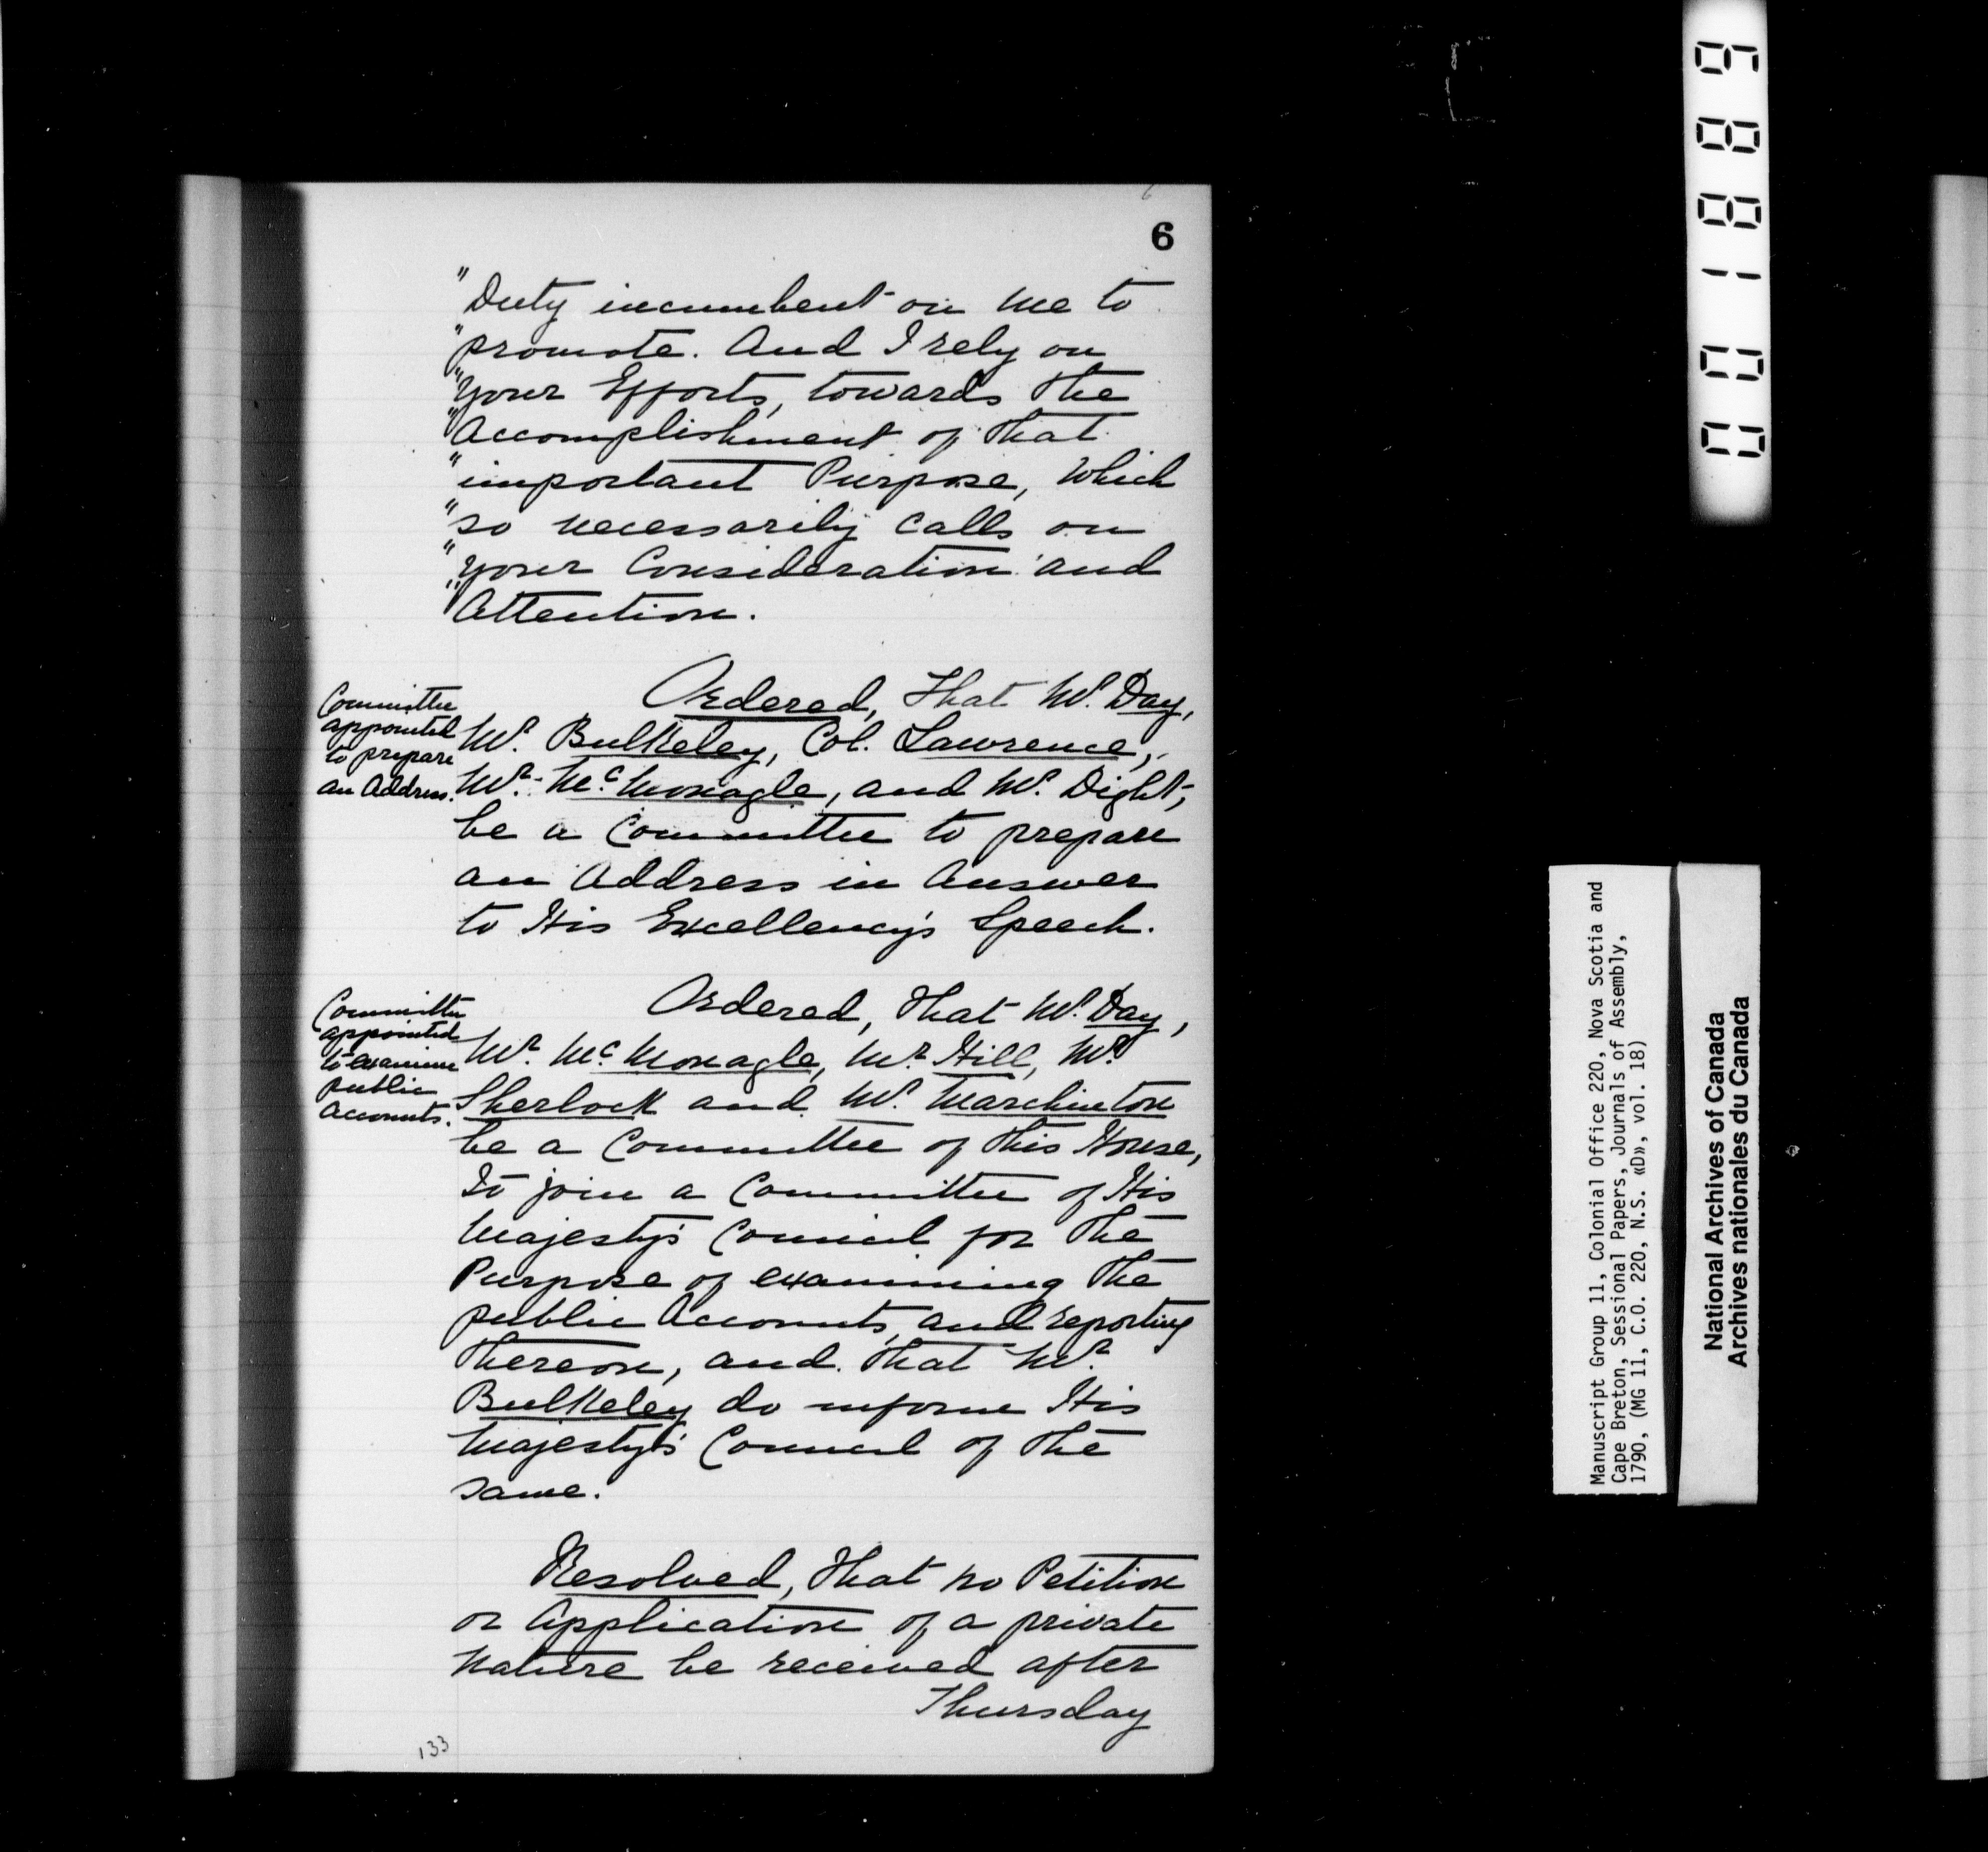 6
"Duty incumbent on me to
"promote. And I rely on
"your Efforts, towards the
"Accomplishment of that
"important Purpose, which
"so necessarily calls on
"your Consideration and
"Attention.
Committee
appointed
to prepare
an Address.
Ordered, That Mr. Day,
Mr. Bulkeley, Col. Lawrence,
Mr. McMonagle, and Mr. Dight,
be a Committee to prepare
an Address in Answer
to His Excellency's Speech.
Committee
appointed
to examine
public
Accounts.
Ordered, That Mr. Day,
Mr. McMonagle, Mr. Hill, Mr.
Sherlock and Mr. Marchinton
be a Committee of this House,
To join a Committee of His
Majesty's Council for the
Purpose of examining the
public Accounts, and reporting
thereon, and that Mr.
Bulkeley do inform His
Majesty's Council of the
same.
Resolved, That no Petition
or Application of a private
Nature be received after
Thursday
133
001889
Manuscript Group 11, Colonial Office 220, Nova Scotia and
Cape Breton, Sessional Papers, Journals of Assembly,
1790, (MG 11, C.O. 220, N.S. «D», vol. 18)
National Archives of Canada
Archives nationales du Canada